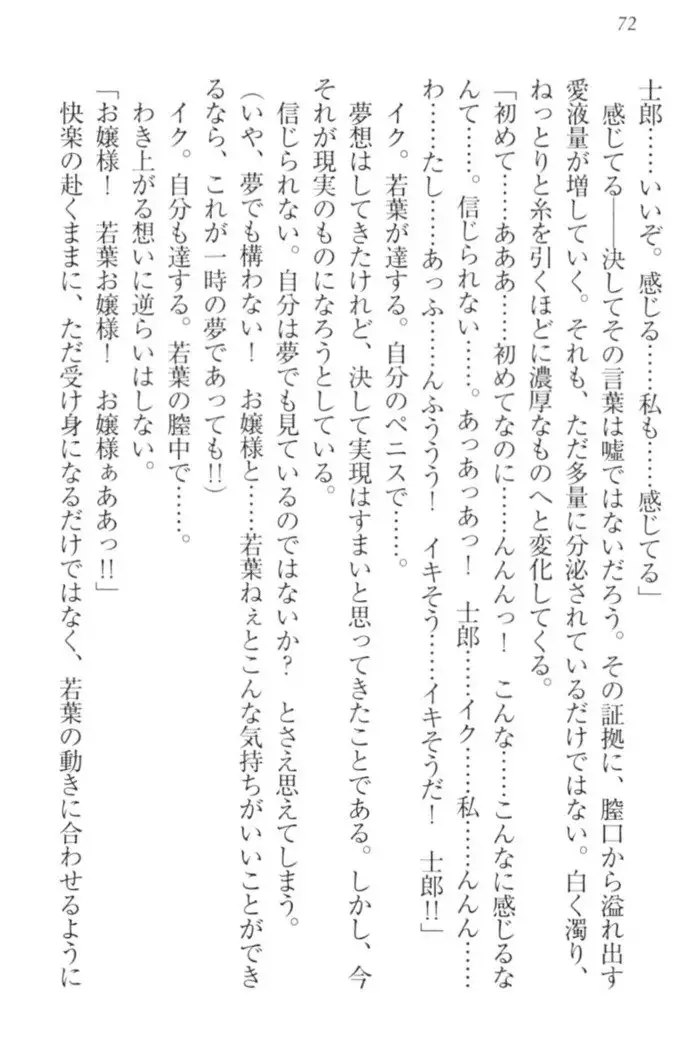 72
士郎……いいぞ。感じる……私も……感じてる」
感じてる――決してその言葉は嘘ではないだろう。その証拠に、膣口から溢れ出す
愛液量が増していく。それも、ただ多量に分泌されているだけではない。白く濁り、
ねっとりと糸を引くほどに濃厚なものへと変化してくる。
「初めて……あああ……初めてなのに……んんんっ！　こんな……こんなに感じるな
んて……。信じられない……。あっあっあっ！　士郎……イク……私……んんん……
わ……たし……あっふ……んふううう！　イキそう……イキそうだ！　士郎!!」
イク。若葉が達する。自分のペニスで……。
夢想はしてきたけれど、決して実現はすまいと思ってきたことである。しかし、今
それが現実のものになろうとしている。
信じられない。自分は夢でも見ているのではないか？　とさえ思えてしまう。
（いや、夢でも構わない！　お嬢様と……若葉ねぇとこんな気持ちがいいことができ
るなら、これが一時の夢であっても!!）
イク。自分も達する。若葉の膣中で……。
わき上がる想いに逆らいはしない。
「お嬢様！　若葉お嬢様！　お嬢様ぁああっ!!」
快楽の赴くままに、ただ受け身になるだけではなく、若葉の動きに合わせるように